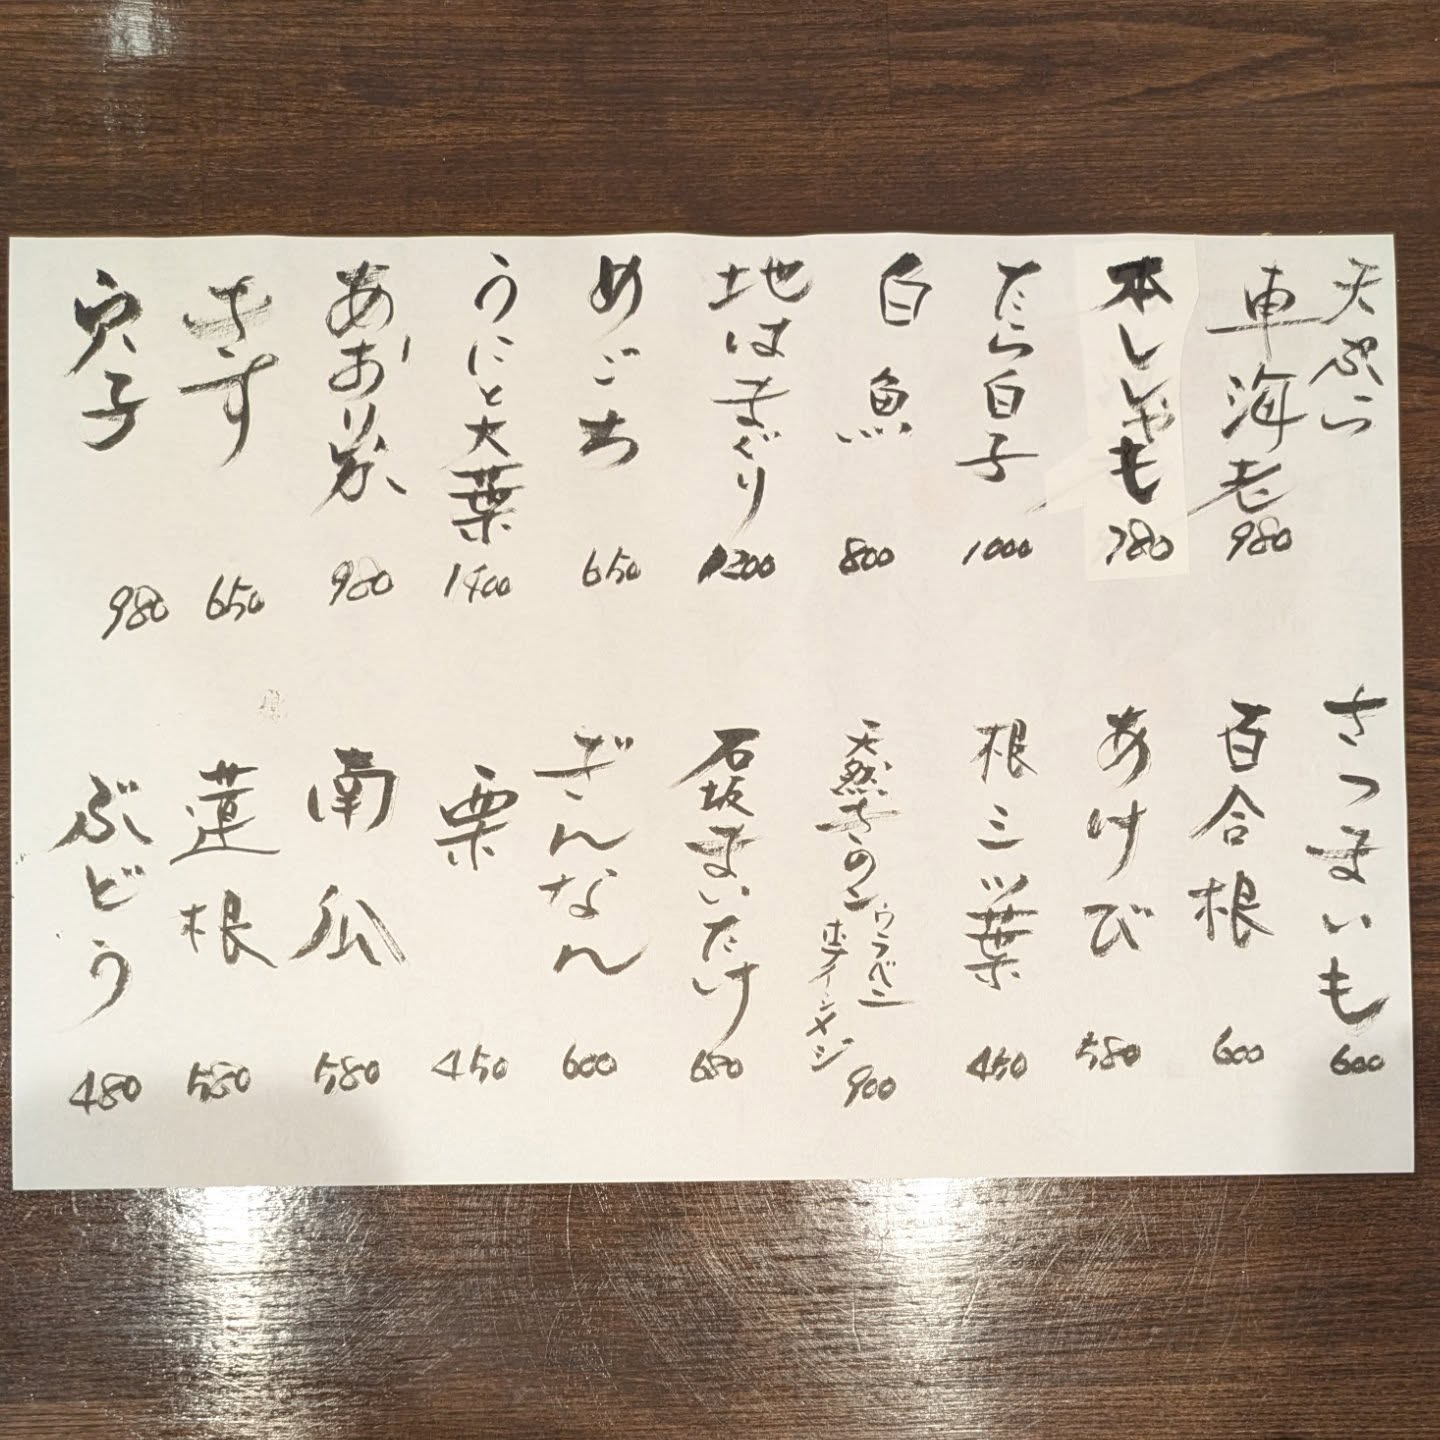 天ぷら
車海老 980
本ししゃも 780
たら白子 1000
白魚 800
地はまぐり 1200
めごち 650
うにと大葉 1400
あおり烏 980
きす 650
穴子 980
さつまいも 600
百合根 600
あけび 580
根三ツ葉 450
天然きのこ ウラベニホテイシメジ 900
石坂まいたけ 680
ぎんなん 600
栗 450
南瓜 580
蓮根 580
ぶどう 480